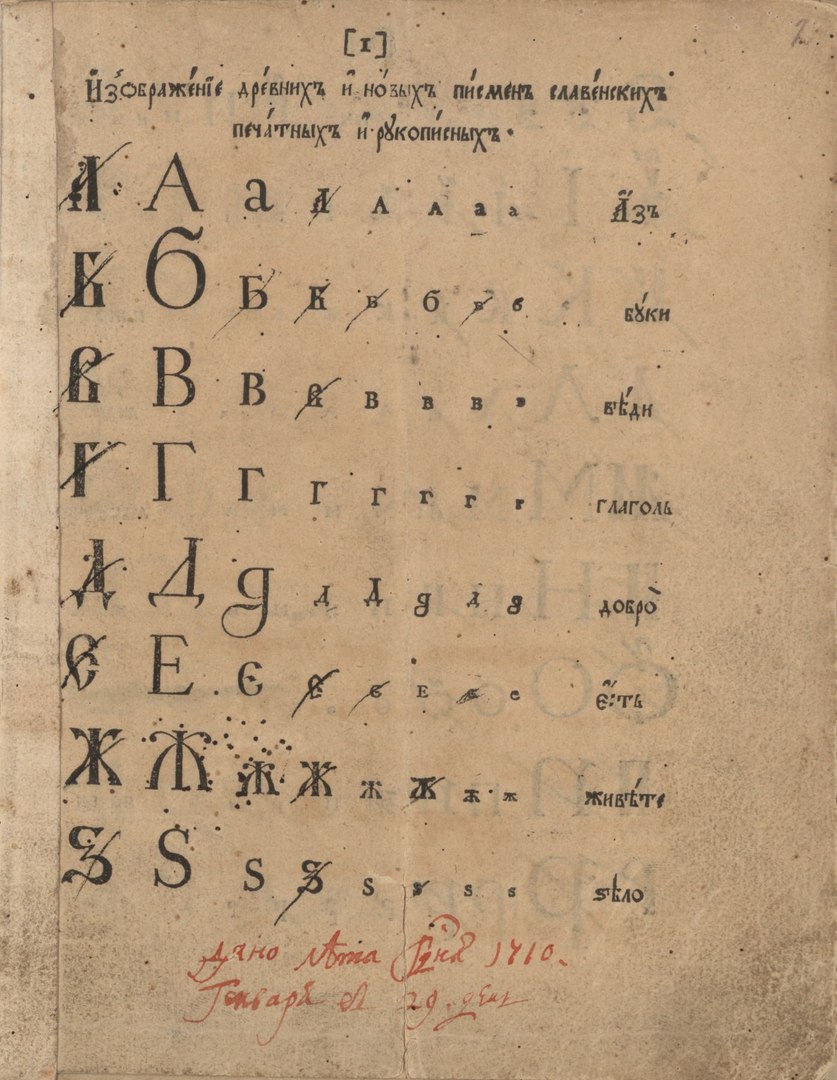 [1]
И҆зѡбраже́нїе дре́внихъ и҆ но́выхъ пи́сменъ славе́нскихъ
печа́тныхъ и҆ рꙋкопи́сныхъ.
А А а А А А а а А҆́зъ
Б Б Б Б Б б Б б бꙋ́ки
В В В В В В В В вѣ́ди
Г Г Г Г Г Г Г Г глаго́ль
Д Д д Д Д д Д д добро̀
Є Е є Є є Е є е є҆́сть
Ж Ж Ж Ж ж Ж ж ж живѣ́те
Ѕ Ѕ ѕ Ѕ ѕ ѕ ѕ ѕ ѕѣло̀
Дано лѣта 1710.
Генваря 29. дня